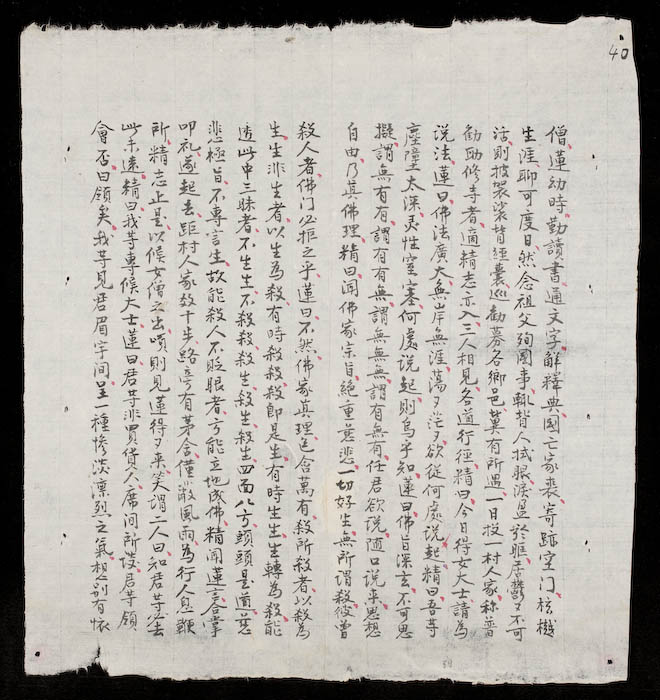 40
僧蓮幼時勤讀書通文字解釋典國亡家喪寄跡空門杼機
生涯聊可度日然念祖父殉國事輒背人拭眼淚盈於眶居鬱夕不可
活則披袈裟背經囊巡勸募各鄉邑冀有所遇一日投一村人家称普
勸助修寺者適精志亦入三人相見各道行徑精曰今日得女大士請為
説法蓮曰佛法廣大無岸無涯蕩夕茫夕欲從何處説起精曰吾等
塵障太深灵性窒塞何處説起則烏乎知蓮曰佛旨深玄不可思
擬謂無有有謂有有無謂無無無謂有無有任君欲説随口説来思想
自由乃真佛理精曰聞佛家宗旨絶重慈悲一切好生無所謂殺彼曾
殺人者佛門必拒之乎蓮曰不然佛家真理包含萬有殺所殺者以殺為
生生非生者以生為殺有時殺殺殺即是生有時生生生轉為殺能
透此中三昧者不生生不殺殺殺生殺生殺生四面八方頭頭是道慈
悲極旨不專言生故能殺人不貶眼者方能立地成佛精聞蓮言合掌
叩礼遂起去距村人家数十步路旁有茅舍僅蔽風雨為行人息鞭
所精志止是以候女僧之出嘖則見蓮得夕来笑謂二人曰知君等坐
此未遠精曰我等專候大士蓮曰君等非買貨人席间所談君等領
會否曰領矣我等見君眉宇间呈一種慘淡凛烈之氣想别有懷